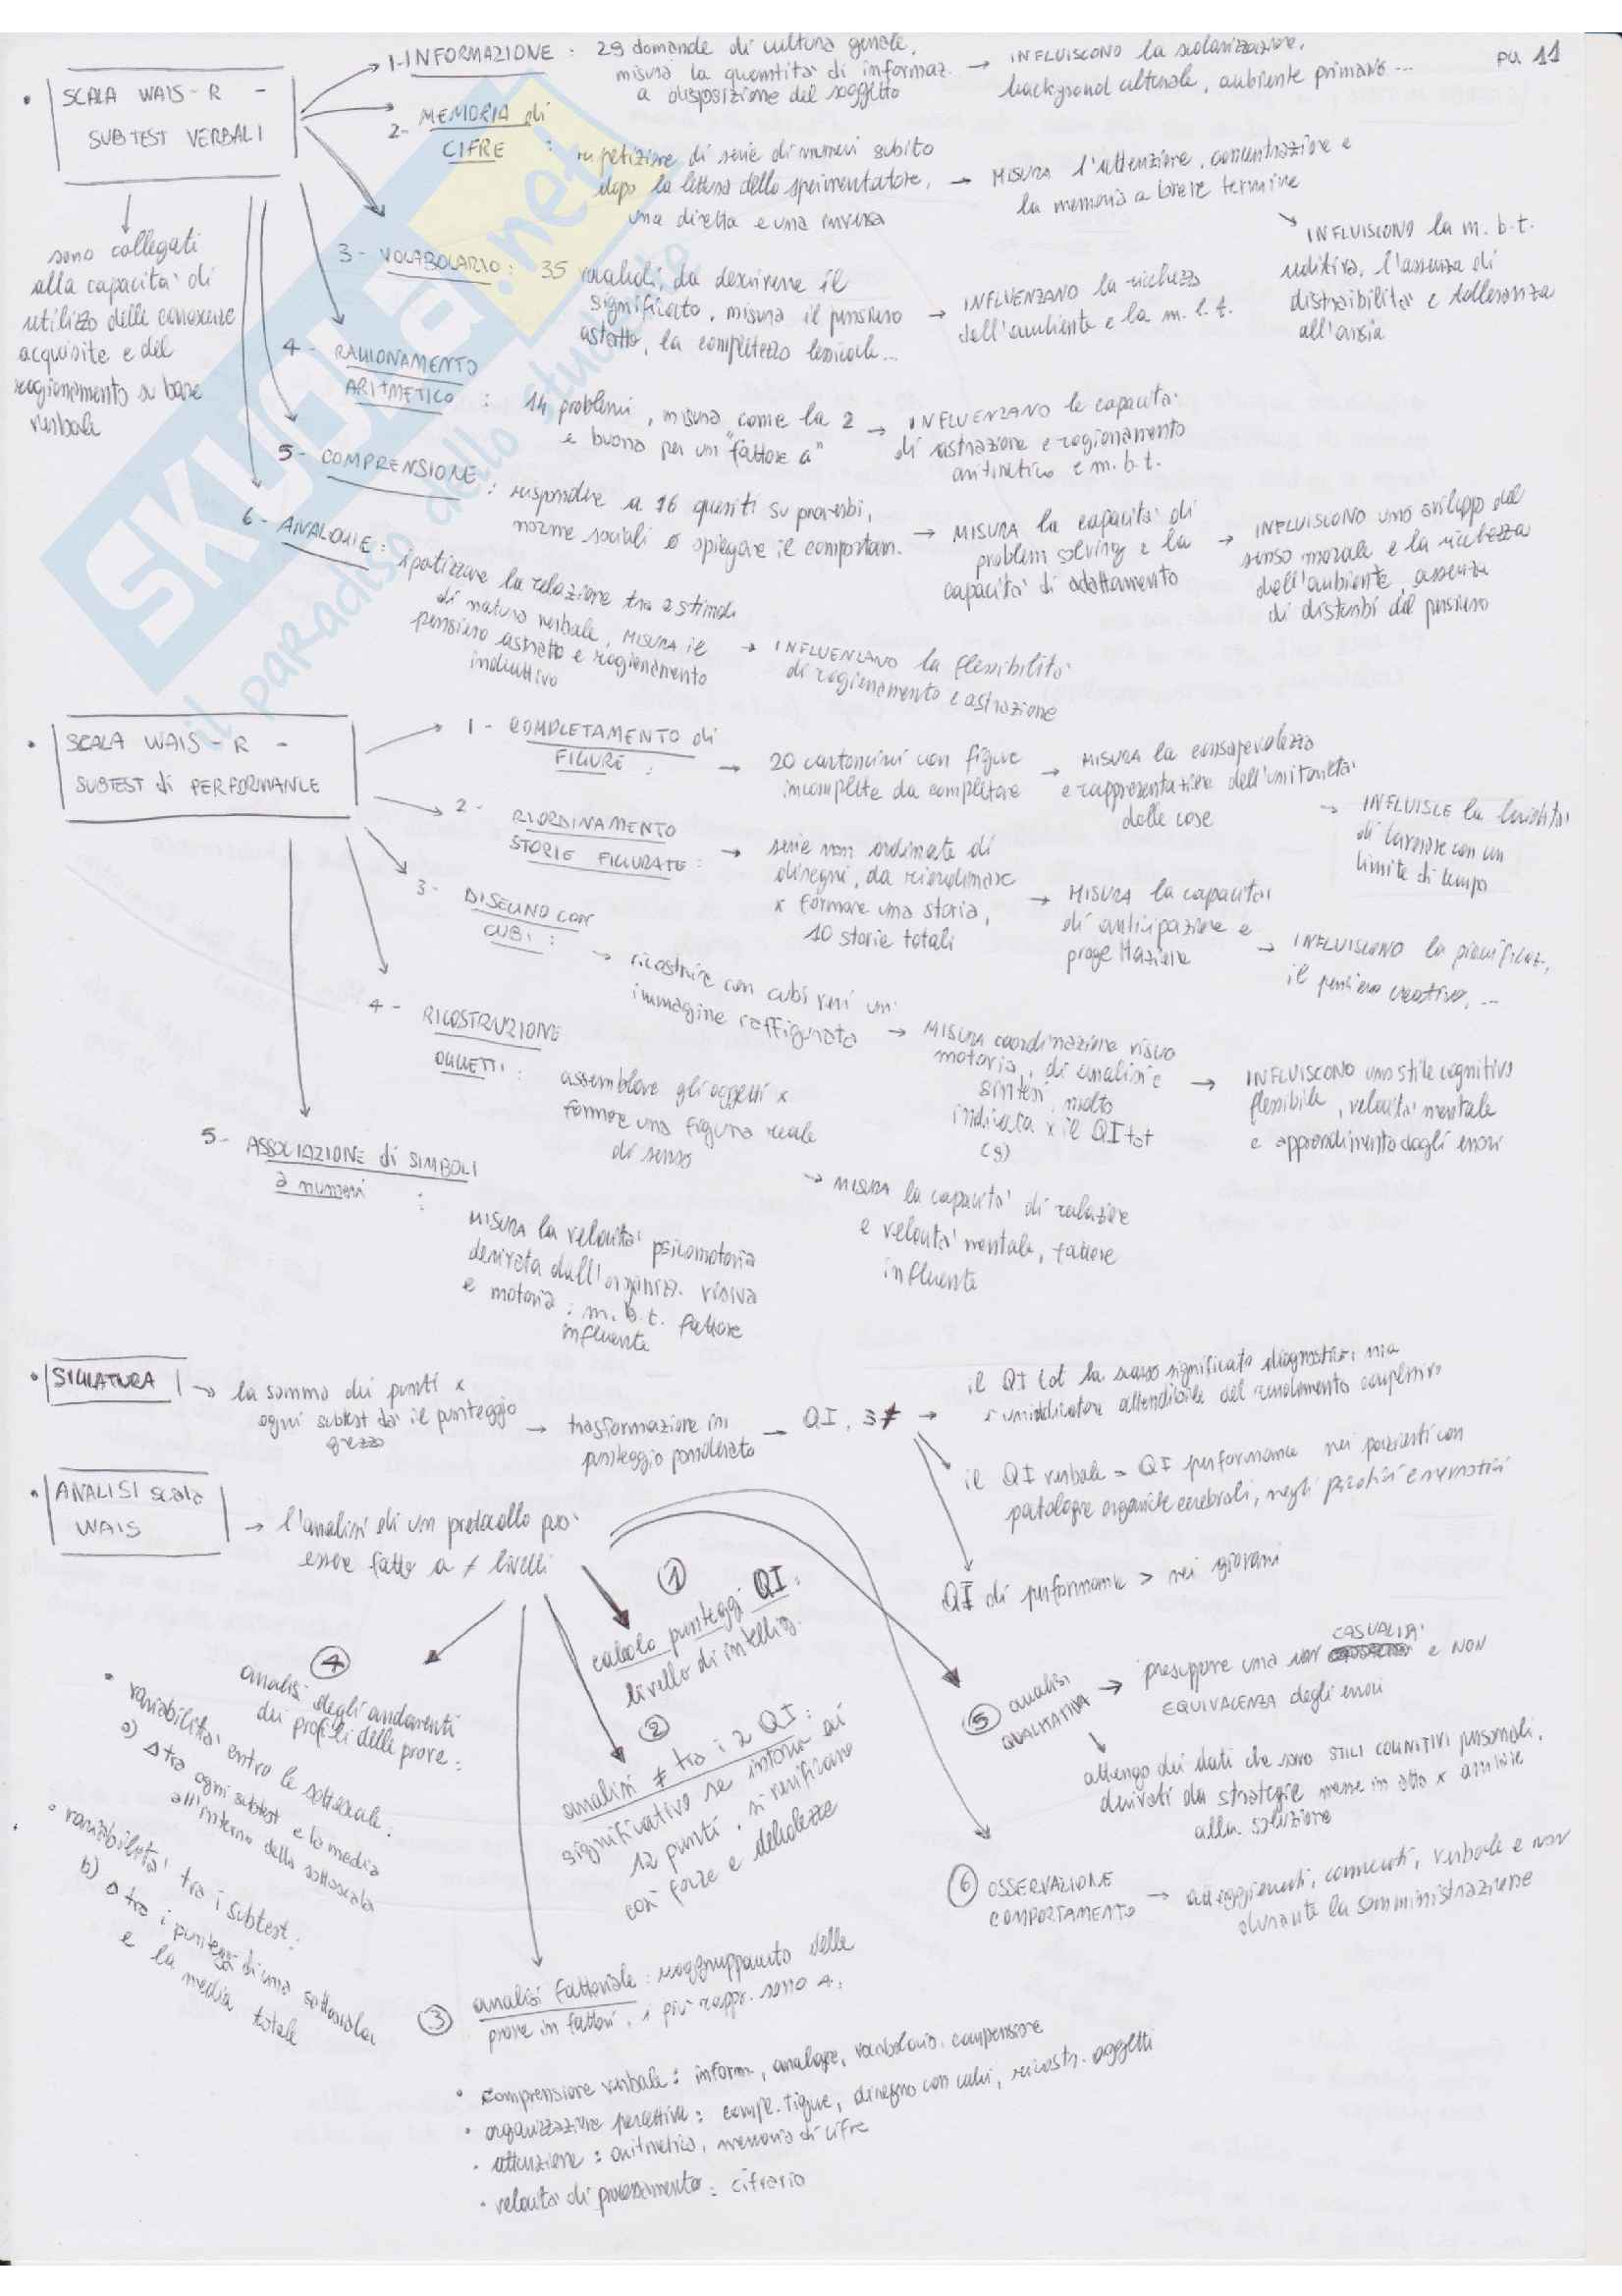 pg 11
• SCALA WAIS-R -
SUBTEST VERBALI
sono collegati
alla capacità di
utilizzo delle conoscenze
acquisite e del
ragionamento su base
verbale
1-INFORMAZIONE : 29 domande di cultura generale,
misura la quantità di informaz.
a disposizione del soggetto
→ INFLUISCONO la scolarizzazione,
background culturale, ambiente primario ...
2- MEMORIA di
CIFRE :
ripetizione di serie di numeri subito
dopo la lettura dello sperimentatore,
una diretta e una inversa
→ MISURA l'attenzione, concentrazione e
la memoria a breve termine
INFLUISCONO la m.b.t.
uditiva, l'assenza di
distraibilità e tolleranza
all'ansia
3- VOCABOLARIO : 35 vocaboli, da descriverne il
significato, misura il pensiero
astratto, la completezza lessicale...
→ INFLUENZANO la ricchezza
dell'ambiente e la m.l.t.
4- RAGIONAMENTO
ARITMETICO : 14 problemi, misura come la 2
e buona per un "fattore a"
→ INFLUENZANO le capacità
di astrazione e ragionamento
aritmetico e m.b.t.
5- COMPRENSIONE : rispondere a 16 quesiti su proverbi,
norme sociali o spiegare il comportam.
→ MISURA la capacità di
problem solving e la
capacità di adattamento
→ INFLUISCONO uno sviluppo del
senso morale e la ricchezza
dell'ambiente, assenza
di disturbi del pensiero
6- ANALOGIE : ipotizzare la relazione tra 2 stimoli
di natura verbale, MISURA il
pensiero astratto e ragionamento
induttivo
→ INFLUENZANO la flessibilità
di ragionamento e astrazione
• SCALA WAIS-R -
SUBTEST di PERFORMANCE
1- COMPLETAMENTO di
FIGURE :
→ 20 cartoncini con figure
incomplete da completare
→ MISURA la consapevolezza
e rappresentazione dell'unitarietà
delle cose
→ INFLUISCE la
di lavorare con un
limite di tempo
2- RIORDINAMENTO
STORIE FIGURATE :
→ serie non ordinate di
disegni, da riordinare
x formare una storia,
10 storie totali
→ MISURA la capacità
di anticipazione e
progettazione
→ INFLUISCONO la pianificaz.,
il pensiero creativo, ...
3- DISEGNO con
CUBI :
→ ricostruire con cubi veri un'
immagine raffigurata
→ MISURA coordinazione visuo
motoria, di analisi e
sintesi, molto
indicata x il QI tot
(g)
→ INFLUISCONO uno stile cognitivo
flessibile, velocità mentale
e apprendimento dagli errori
4- RICOSTRUZIONE
OGGETTI :
assemblare gli oggetti x
formare una figura reale
di senso
→ MISURA la capacità di relazione
e velocità mentale, fattore
influente
5- ASSOCIAZIONE di SIMBOLI
a numeri :
MISURA la velocità psicomotoria
derivata dall'organizz. visiva
e motoria : m.b.t. fattore
influente
• SIGLATURA → la somma dei punti x
ogni subtest dà il punteggio
grezzo
→ trasformazione in
punteggio ponderato
→ QI, 3 ≠ →
il QI tot ha scarso significato diagnostico, ma
è un indicatore attendibile del rendimento complessivo
il QI verbale = QI performance nei pazienti con
patologie organiche cerebrali, negli psicotici e nevrotici
QI di performance > nei giovani
• ANALISI scala
WAIS
→ l'analisi di un protocollo può
essere fatta a ≠ livelli
① calcolo punteggi QI :
livello di intellig.
② analisi ≠ tra i 2 QI :
significativo se intorno ai
12 punti, si verificano
così forze e debolezze
③ analisi fattoriale : raggruppamento delle
prove in fattori, i più rappr. sono 4:
• comprensione verbale : inform, analogie, vocabolario, comprensione
• organizzazione percettiva : comple. figure, disegno con cubi, ricostr. oggetti
• attenzione : aritmetica, memoria di cifre
• velocità di processamento : cifrario
④ analisi degli andamenti
dei profili delle prove :
• variabilità entro le sottoscale :
a) Δ tra ogni subtest e la media
all'interno della sottoscala
• variabilità tra i subtest :
b) Δ tra i punteggi di una sottoscala
e la media totale
⑤ analisi
QUALITATIVA
→ presuppone una non CASUALITÀ e NON
EQUIVALENZA degli errori
ottengo dei dati che sono STILI COGNITIVI personali,
derivati da strategie messe in atto x arrivare
alla soluzione
⑥ OSSERVAZIONE
COMPORTAMENTO
→ atteggiamenti, commenti, verbale e non
durante la somministrazione
SKUOLA.net
il paradiso dello studente